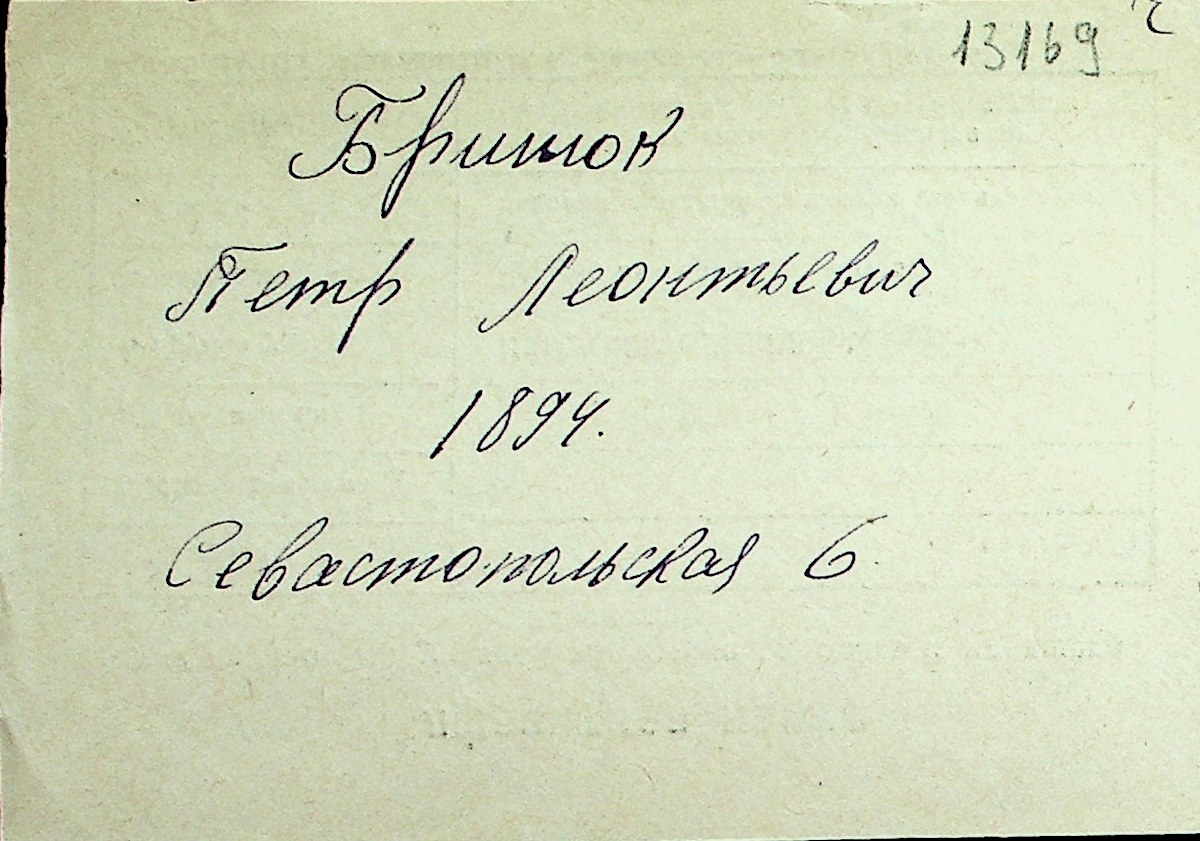 13169
Бришок
Петр Леонтьевич
1894.
Севастопольская 6.